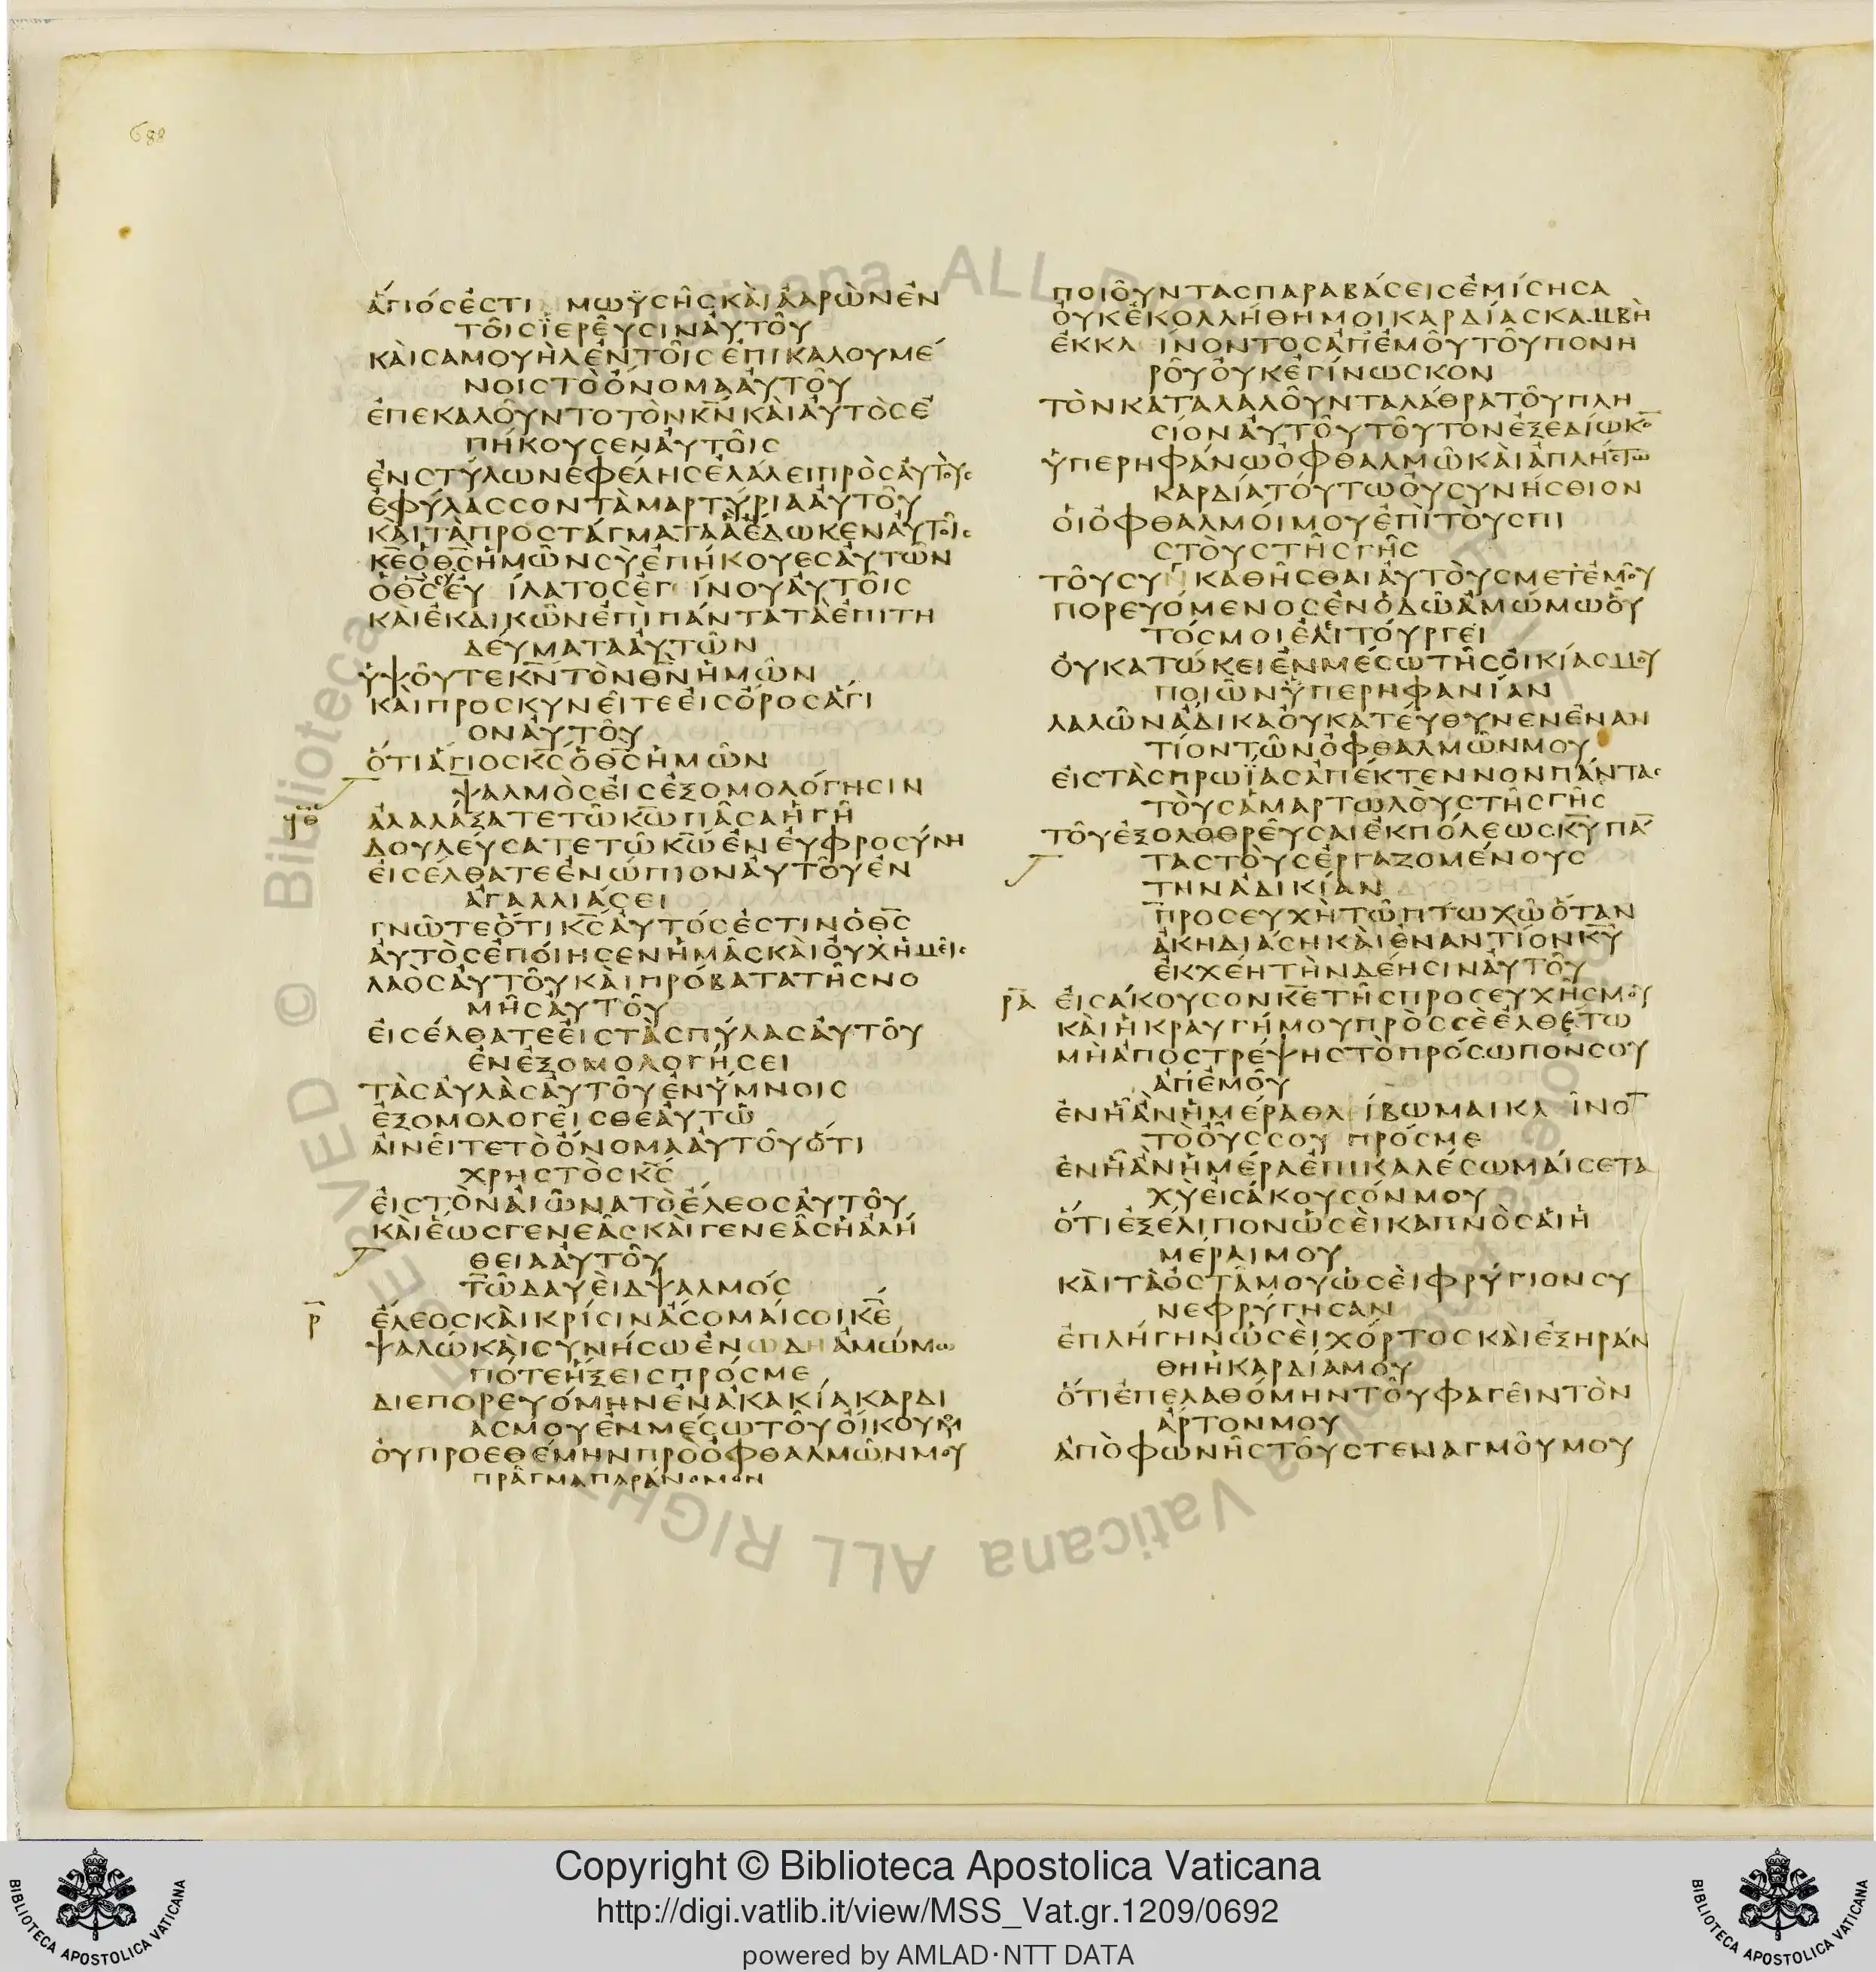 688
ἅγιός ἐστι Μωϋσῆς καὶ Ἀαρὼν ἐν
τοῖς ἱερεῦσιν αὐτοῦ
καὶ Σαμουὴλ ἐν τοῖς ἐπικαλουμέ
νοις τὸ ὄνομα αὐτοῦ
ἐπεκαλοῦντο τὸν κ̅ν̅ καὶ αὐτὸς ἐ
πήκουσεν αὐτοῖς
ἐν στύλω νεφέλης ἐλάλει πρὸς αὐτούς
ἐφύλασσον τὰ μαρτύρια αὐτοῦ
καὶ τὰ προστάγματα ἃ ἔδωκεν αὐτοῖς
κ̅ε̅ ὁ θ̅ς̅ ἡμῶν σὺ ἐπήκουες αὐτῶν
ὁ θ̅ς̅ σὺ εὐίλατος ἐγίνου αὐτοῖς
καὶ ἐκδικῶν ἐπὶ πάντα τὰ ἐπιτη
δεύματα αὐτῶν
ὑψοῦτε κ̅ν̅ τὸν θ̅ν̅ ἡμῶν
καὶ προσκυνεῖτε εἰς ὄρος ἅγι
ον αὐτοῦ
ὅτι ἅγιος κ̅ς̅ ὁ θ̅ς̅ ἡμῶν
ψαλμὸς εἰς ἐξομολόγησιν
ϟθ ἀλαλάξατε τῶ κ̅ω̅ πᾶσα ἡ γῆ
δουλεύσατε τῶ κ̅ω̅ ἐν εὐφροσύνη
εἰσέλθατε ἐνώπιον αὐτοῦ ἐν
ἀγαλλιάσει
γνῶτε ὅτι κ̅ς̅ αὐτός ἐστιν ὁ θ̅ς̅
αὐτὸς ἐποίησεν ἡμᾶς καὶ οὐχ ἡμεῖς
λαὸς αὐτοῦ καὶ πρόβατα τῆς νο
μῆς αὐτοῦ
εἰσέλθατε εἰς τὰς πύλας αὐτοῦ
ἐν ἐξομολογήσει
τὰς αὐλὰς αὐτοῦ ἐν ὕμνοις
ἐξομολογεῖσθε αὐτῶ
αἰνεῖτε τὸ ὄνομα αὐτοῦ ὅτι
χρηστὸς κ̅ς̅
εἰς τὸν αἰῶνα τὸ ἔλεος αὐτοῦ
καὶ ἕως γενεᾶς καὶ γενεᾶς ἡ ἀλή
θεια αὐτοῦ
τῶ Δαυεὶδ ψαλμός
ρ̅ ἔλεος καὶ κρίσιν ἄσομαί σοι κ̅ε̅
ψαλῶ καὶ συνήσω ἐν ωδη ἀμώμω
πότε ἥξεις πρός με
διεπορευόμην ἐν ἀκακία καρδί
ας μου ἐν μέσω τοῦ οἴκου μου
οὐ προεθέμην πρὸ ὀφθαλμῶν μου
πρᾶγμα παράνομον
ποιοῦντας παραβάσεις ἐμίσησα
οὐκ ἐκολλήθη μοι καρδία σκαμβὴ
ἐκκλίνοντος ἀπ' ἐμοῦ τοῦ πονη
ροῦ οὐκ ἐγίνωσκον
τὸν καταλαλοῦντα λάθρα τοῦ πλη
σίον αὐτοῦ τοῦτον ἐξεδίωκο̅
ὑπερηφάνω ὀφθαλμῶ καὶ ἀπλήστω
καρδία τούτω οὐ συνήσθιον
οἱ ὀφθαλμοί μου ἐπὶ τοὺς πι
στοὺς τῆς γῆς
τοῦ συνκαθῆσθαι αὐτοὺς μετ' ἐμοῦ
πορευόμενος ἐν ὁδῶ ἀμώμω οὗ
τός μοι ἐλιτούργει
οὐ κατώκει ἐν μέσω τῆς οἰκίας μου
ποιῶν ὑπερηφανίαν
λαλῶν ἄδικα οὐ κατεύθυνεν ἐναν
τίον τῶν ὀφθαλμῶν μου
εἰς τὰς πρωΐας ἀπέκτεννον πάντας
τοὺς ἁμαρτωλοὺς τῆς γῆς
τοῦ ἐξολοθρεῦσαι ἐκ πόλεως κ̅υ̅ πά̅
τας τοὺς ἐργαζομένους
την ἀδικίαν
προσευχὴ τῶ πτωχῶ ὅταν
ἀκηδιάση καὶ ἐναντίον κ̅υ̅
ἐκχέη τὴν δέησιν αὐτοῦ
ρ̅α̅ εἰσάκουσον κ̅ε̅ τῆς προσευχῆς μου
καὶ ἡ κραυγή μου πρὸς σὲ ἐλθέτω
μὴ ἀποστρέψης τὸ πρόσωπόν σου
ἀπ' ἐμοῦ
ἐν ἧ ἂν ἡμέρα θλίβωμαι κλῖνο̅
τὸ οὖς σου πρός με
ἐν ἧ ἂν ἡμέρα ἐπικαλέσωμαί σε τα
χὺ εἰσάκουσόν μου
ὅτι ἐξέλιπον ὡσεὶ καπνὸς αἱ ἡ
μέραι μου
καὶ τὰ ὀστᾶ μου ὡσεὶ φρύγιον συ
νεφρύγησαν
ἐπλήγην ὡσεὶ χόρτος καὶ ἐξηράν
θη ἡ καρδία μου
ὅτι ἐπελαθόμην τοῦ φαγεῖν τὸν
ἄρτον μου
ἀπὸ φωνῆς τοῦ στεναγμοῦ μου
Copyright © Biblioteca Apostolica Vaticana
http://digi.vatlib.it/view/MSS_Vat.gr.1209/0692
powered by AMLAD·NTT DATA
BIBLIOTECA APOSTOLICA VATICANA
BIBLIOTECA APOSTOLICA VATICANA